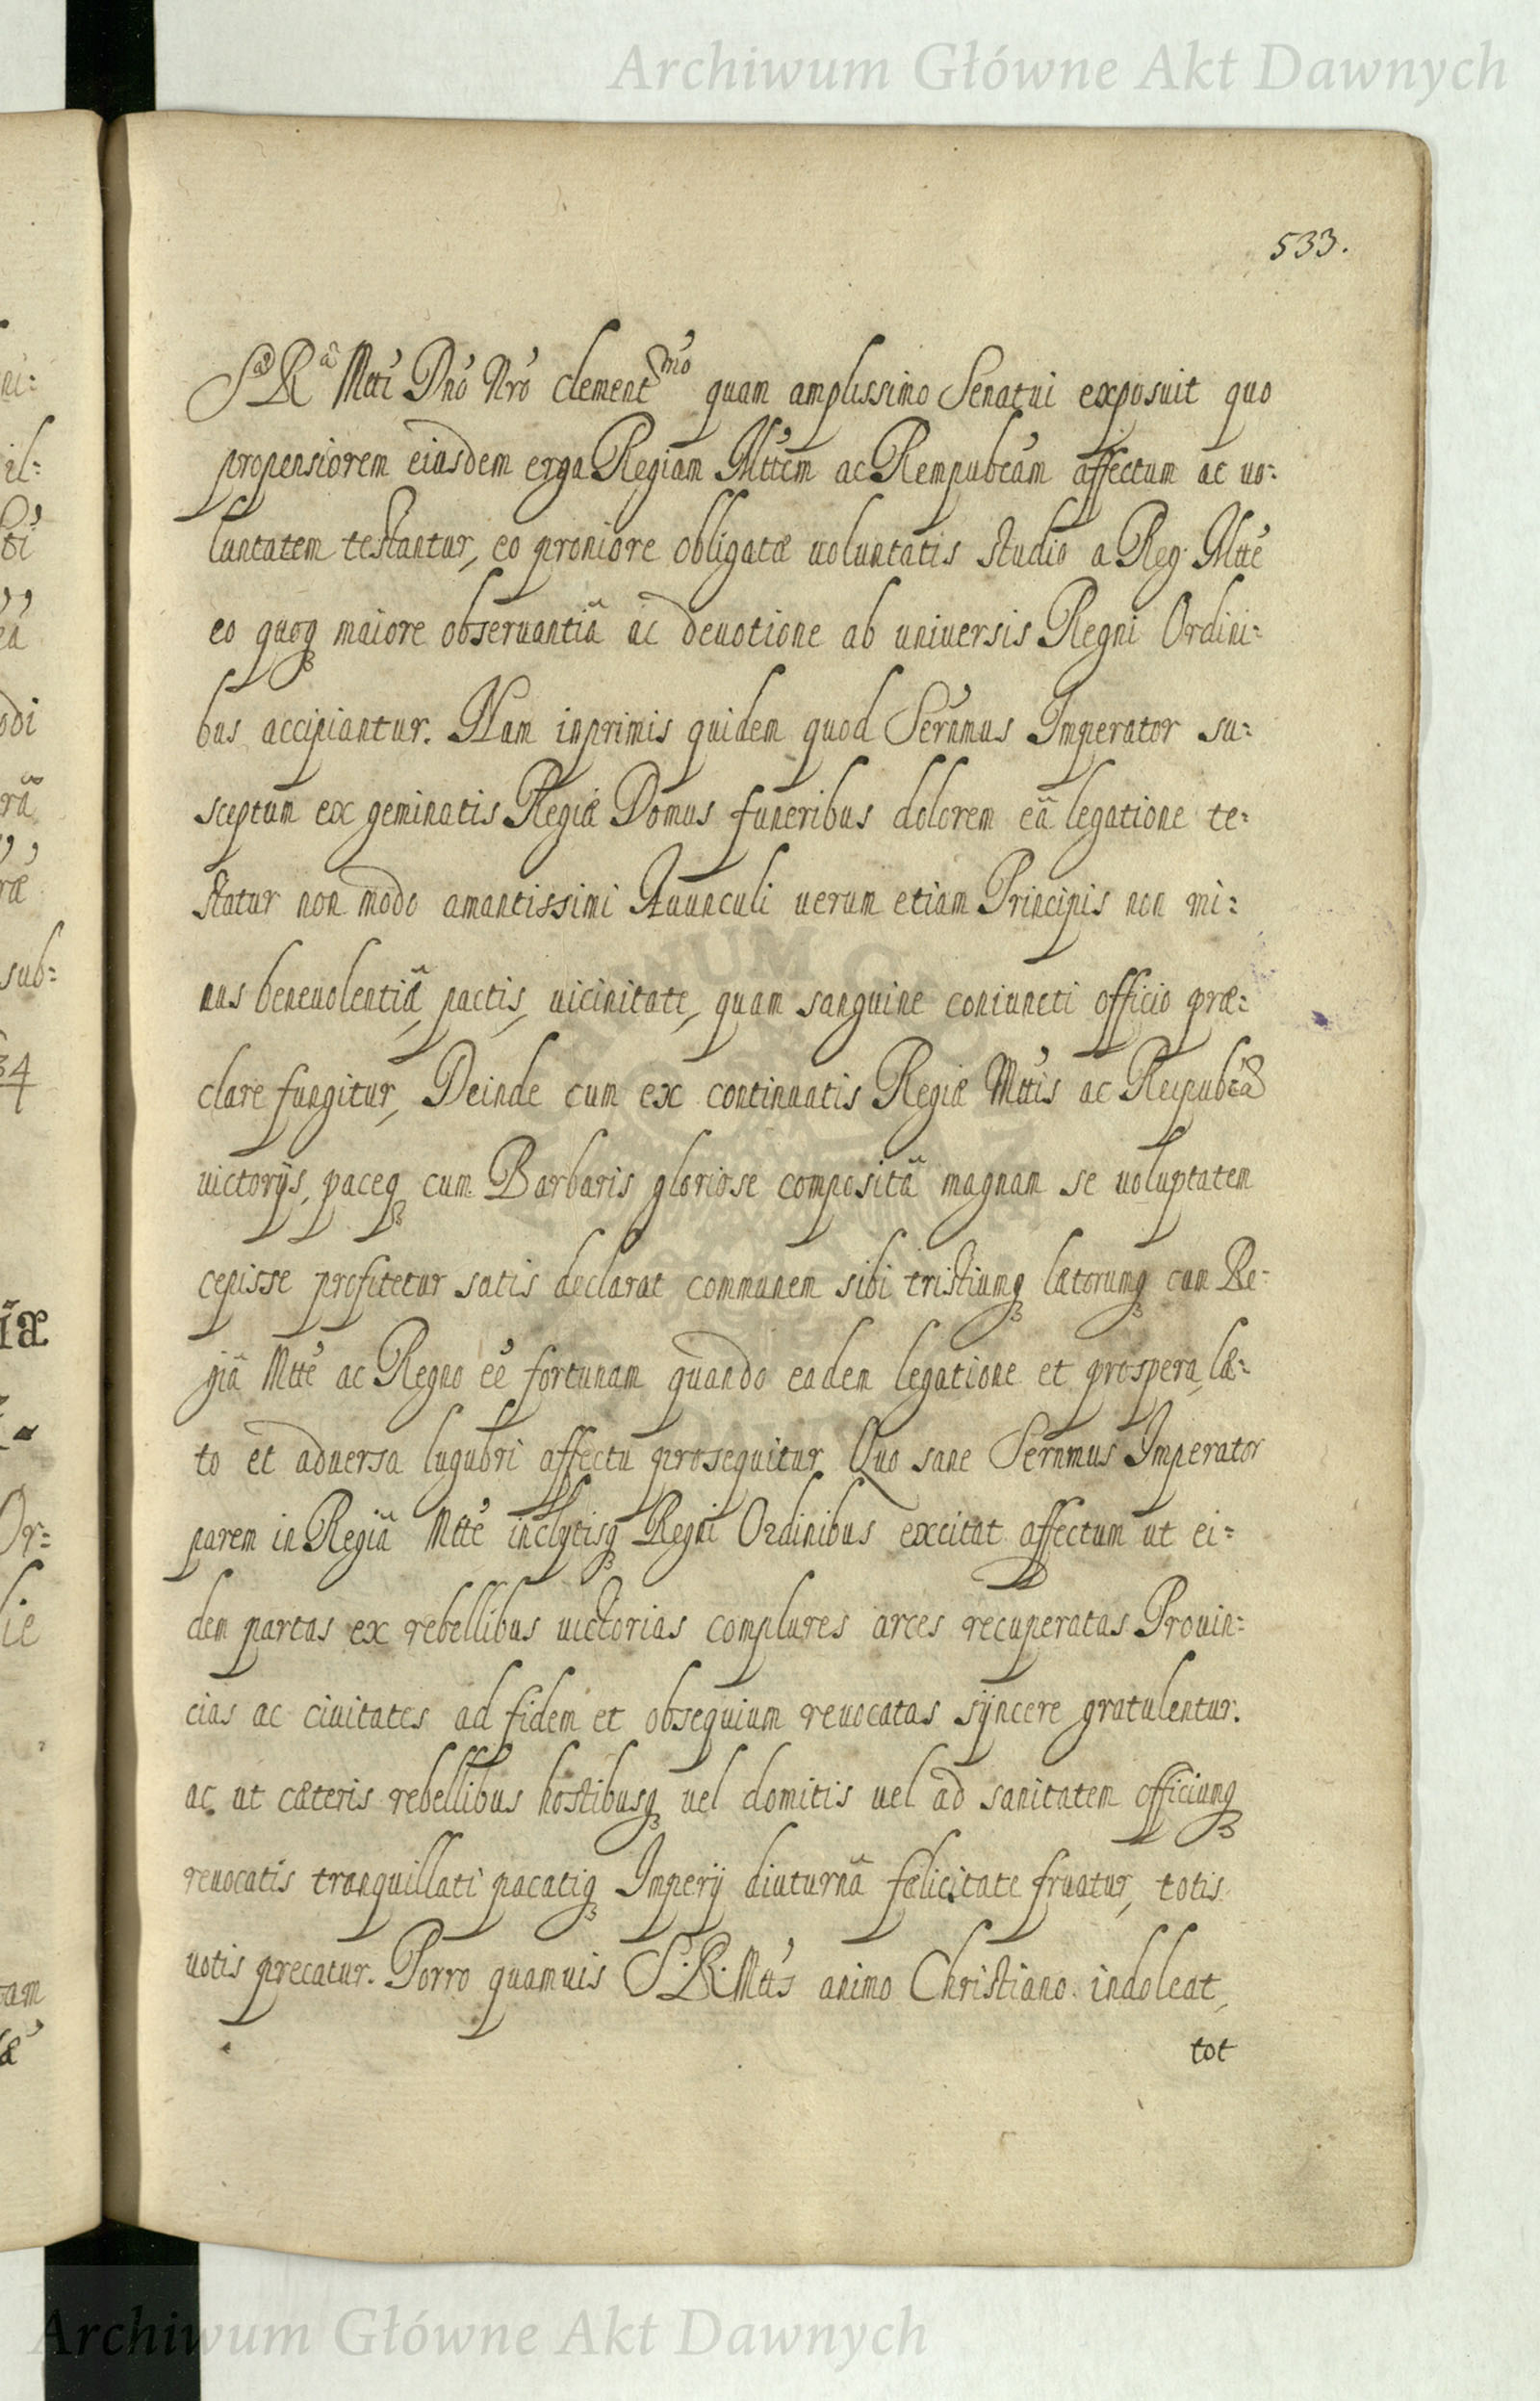 Archiwum Główne Akt Dawnych
533.
Sae Rae Mtti Dno Nro clementmo quam amplissimo Senatui exposuit quo
propensiorem eiusdem erga Regiam Mttem ac Rempubcam affectum ac uo:
luntatem testantur, eo proniore obligatæ uoluntatis studio a Reg: Mtte
eo quoq maiore obseruantiâ ac deuotione ab uniuersis Regni Ordini:
bus accipiantur. Nam inprimis quidem quod Sernmus Imperator su:
sceptum ex geminatis Regiæ Domus funeribus dolorem eâ legatione te:
statur non modo amantissimi Auunculi uerum etiam Principis non mi:
nus beneuolentiâ, pactis, uicinitate, quam sanguine coniuncti officio præ:
clare fungitur, Deinde cum ex continuatis Regiæ Mttis ac Reipubcæ
uictorijs, paceq cum Barbaris gloriose compositâ magnam se uoluptatem
cepisse profitetur satis declarat communem sibi tristiumq lætorumq cum Re:
giâ Mtte ac Regno eê fortunam quando eadem legatione et prospera, læ:
to et aduersa lugubri affectu prosequitur. Quo sane Sernmus Imperator
parem in Regiâ Mtte inclytisq Regni Ordinibus excitat affectum ut ei:
dem partas ex rebellibus uictorias complures arces recuperatas Prouin:
cias ac ciuitates ad fidem et obsequium reuocatas syncere gratulentur.
ac ut cæteris rebellibus hostibusq uel domitis uel ad sanitatem officiumq
reuocatis tranquillati pacatiq Imperij diuturnâ fælicitate fruatur, totis
uotis precatur. Porro quamuis S. R. Mtts animo Christiano indoleat,
tot
Archiwum Główne Akt Dawnych